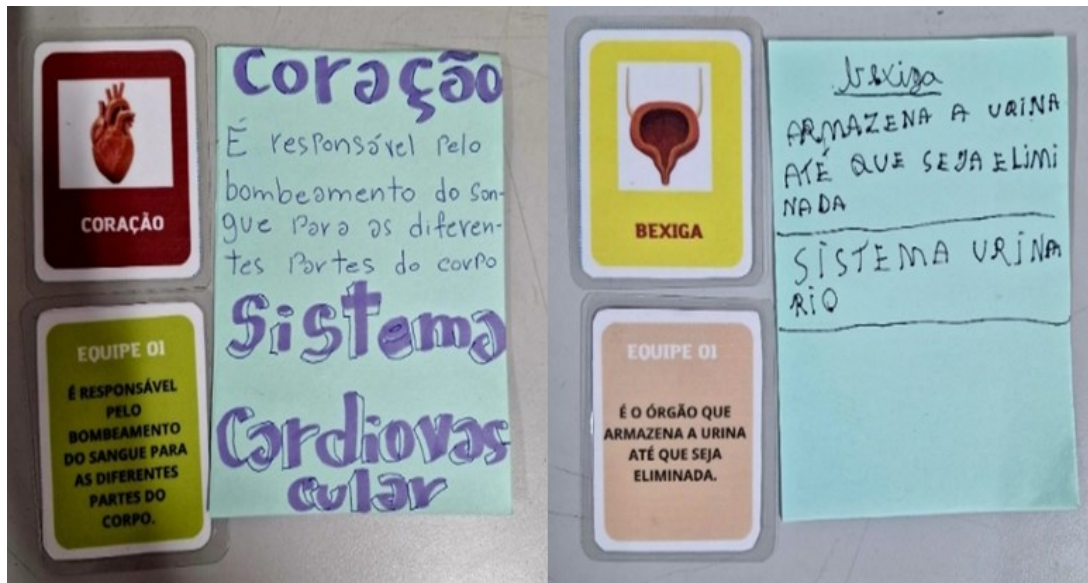 CORAÇÃO
EQUIPE 01
É RESPONSÁVEL
PELO
BOMBEAMENTO
DO SANGUE PARA
AS DIFERENTES
PARTES DO
CORPO.
Coração
É responsável Pelo
bombeamento do san-
gue Para as diferen-
tes Partes do corpo
Sistema
Cardiovas
cular
BEXIGA
EQUIPE 01
É O ÓRGÃO QUE
ARMAZENA A URINA
ATÉ QUE SEJA
ELIMINADA.
bexiga
ARMAZENA A URINA
ATÉ QUE SEJA ELIMI
NADA
SISTEMA URINA
RIO